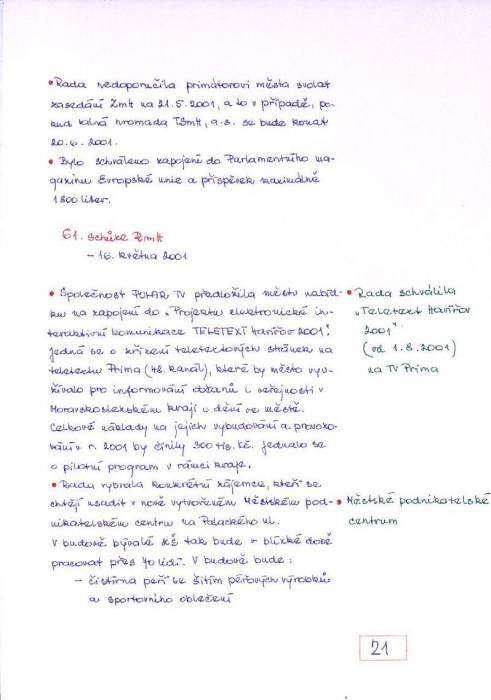 • Rada nedoporučila primátorovi města svolat
zasedání ZmH na 21.5.2001, a to v případě, po-
kud valná hromada TSmH, a.s. se bude konat
20.6.2001.
• Bylo schváleno zapojení do Parlamentního ma-
gazínu Evropské unie a příspěvek maximálně
1 800 liter.
61. schůze RmH
– 16. května 2001
• Společnost POLAR TV předložila městu nabíd-
ku na zapojení do „Projektu elektronické in-
teraktivní komunikace TELETEXT Havířov 2001".
Jedná se o zřízení teletextových stránek na
teletextu Prima (48. kanál), které by město vyu-
žívalo pro informování občanů i veřejnosti v
Moravskoslezském kraji o dění ve městě.
Celkové náklady na jejich vybudování a provoko-
vání v r. 2001 by činily 300 tis. Kč. Jednalo se
o pilotní program v rámci kraje.
• Rada schválila
„Teletext Havířov
2001"
(od 1.8.2001)
na TV Prima
• Rada vybrala konkrétní zájemce, kteří se
chtějí usadit v nově vytvořeném Městském pod-
nikatelském centru na Palackého ul.
V budově bývalé ZŠ tak bude v blízké době
pracovat přes 40 lidí. V budově bude:
– čistírna peří se šitím péřových výrobků
a sportovního oblečení
• Městské podnikatelské
centrum
21